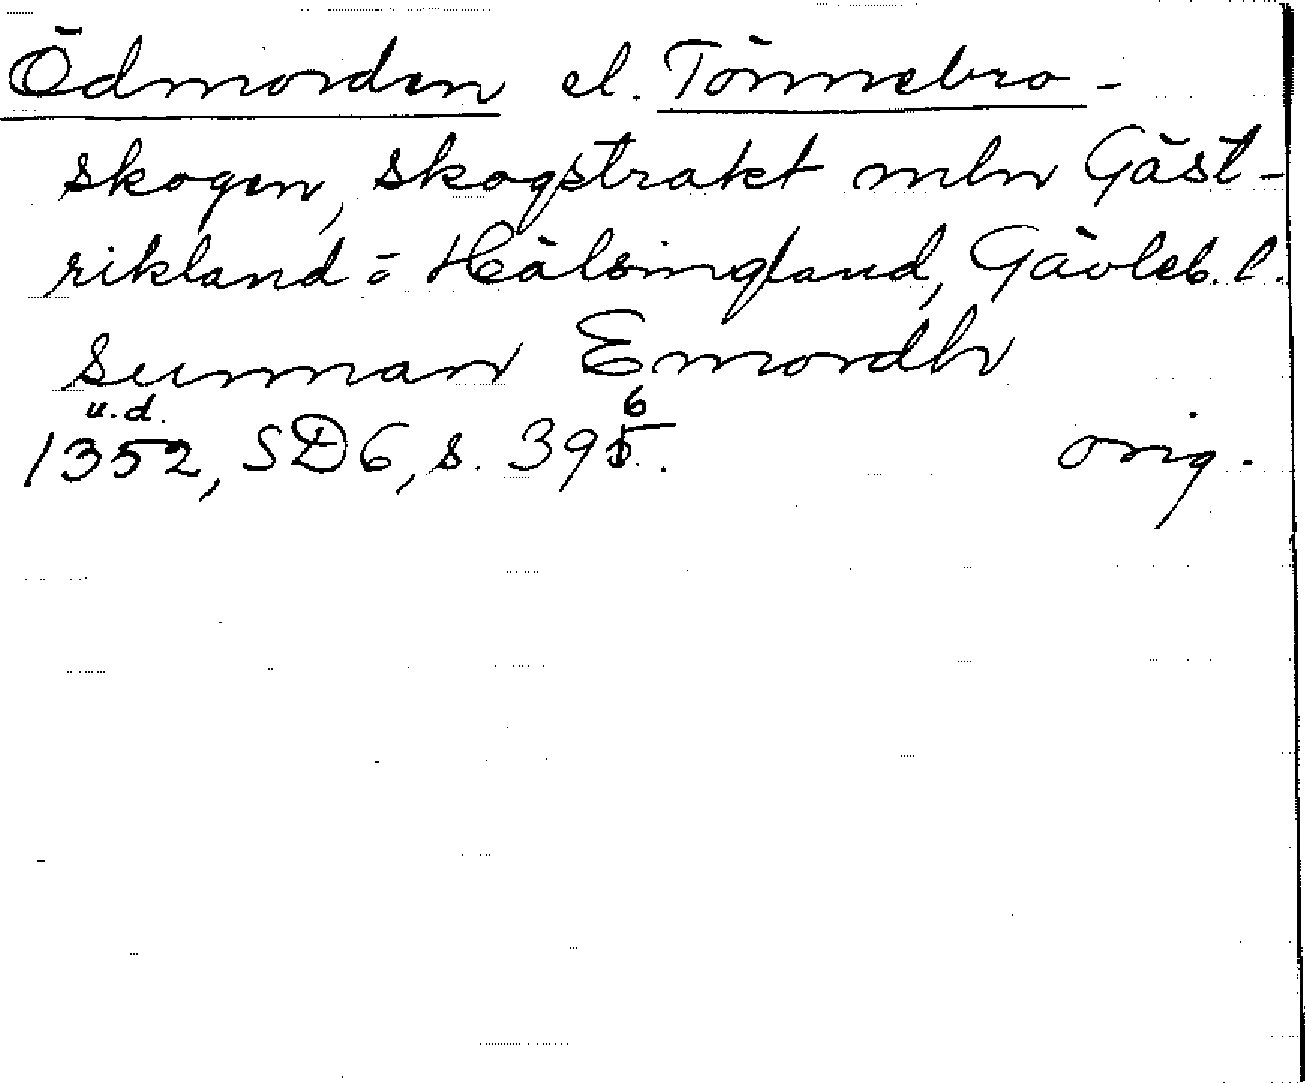 Ödmorden el. Tönnebro-
skogen, skogstrakt mln Gäst-
rikland o Hälsingland, Gävleb. l.
sunnan Emordh
1352 u.d., SD6, s. 396. orig.